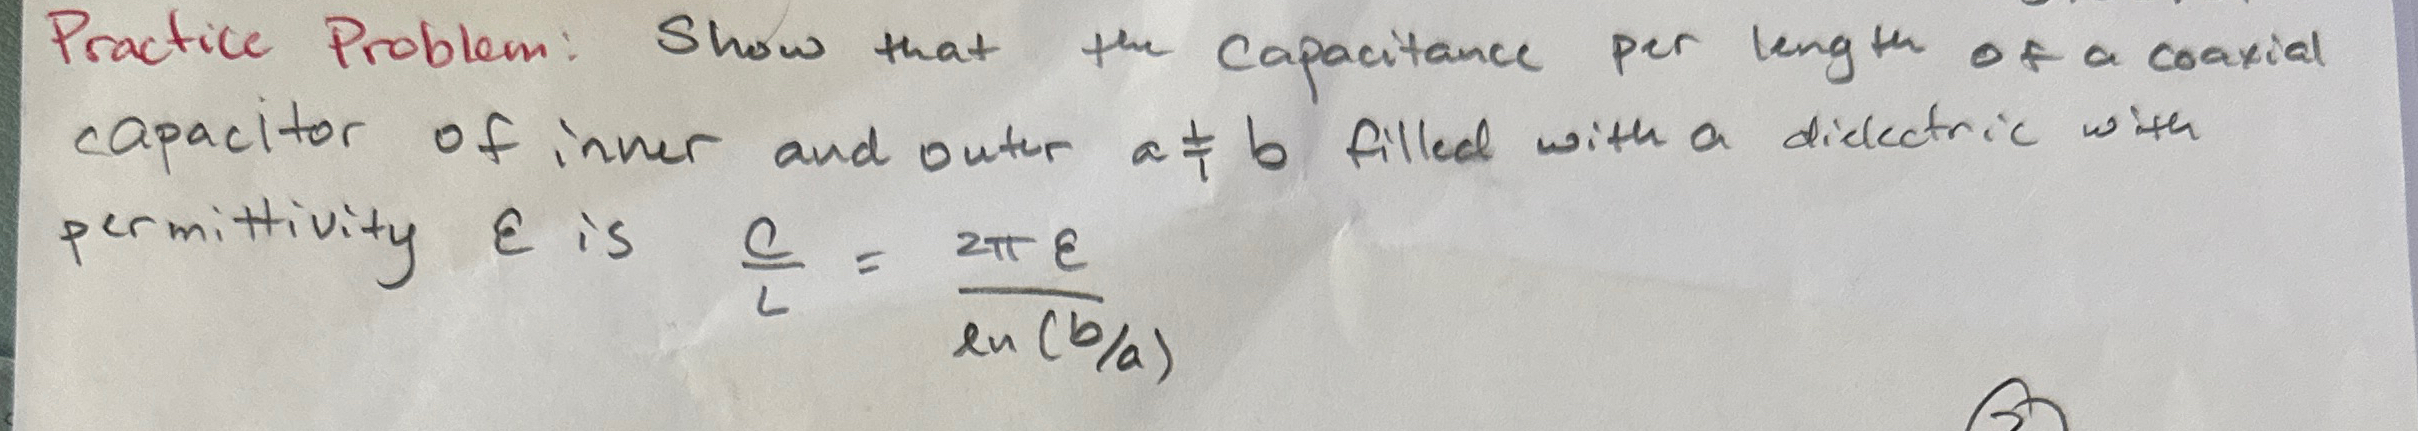 Practice Problem: Show that the capacitance per length of a coaxial
capacitor of inner and outer a & b filled with a dielectric with
permittivity ε is C/L = 2π ε / ln (b/a)